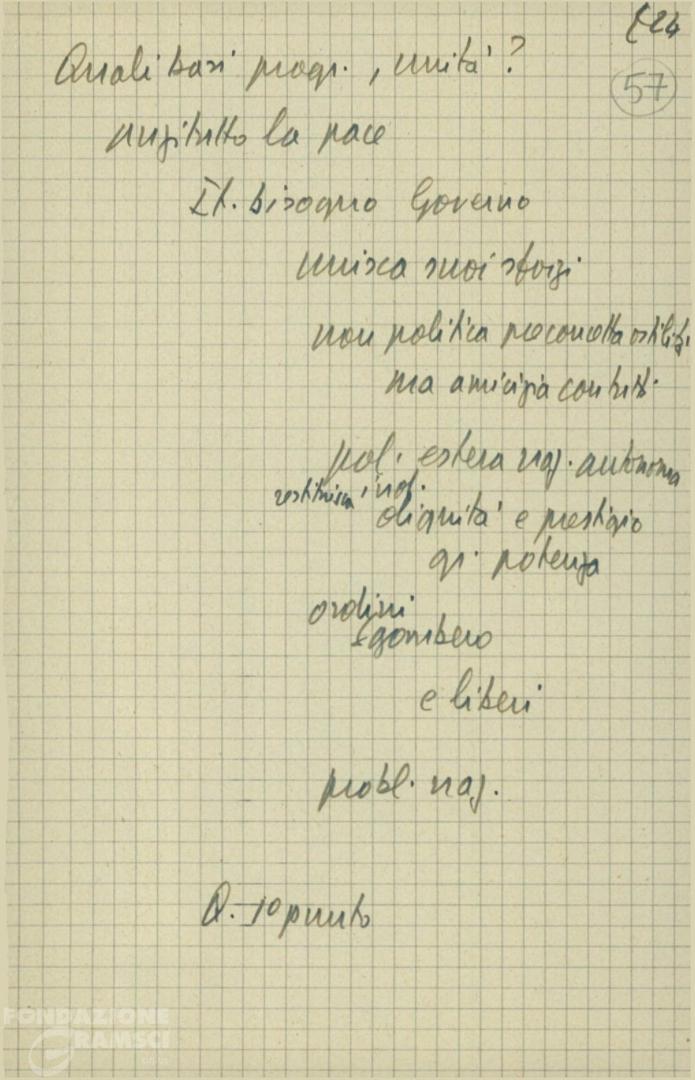 (24
57
Quali basi progr., unità?
anzitutto la pace
It. bisogno Governo
unisca suoi sforzi
non politica preconcetta ostilità
ma amicizia con tutti
pol. estera naz. autonoma
restituisca, ind.
dignità e prestigio
gr. potenza
ordini
sgombero
e liberi
probl. naz.
Q. 1º punto
FONDAZIONE
GRAMSCI